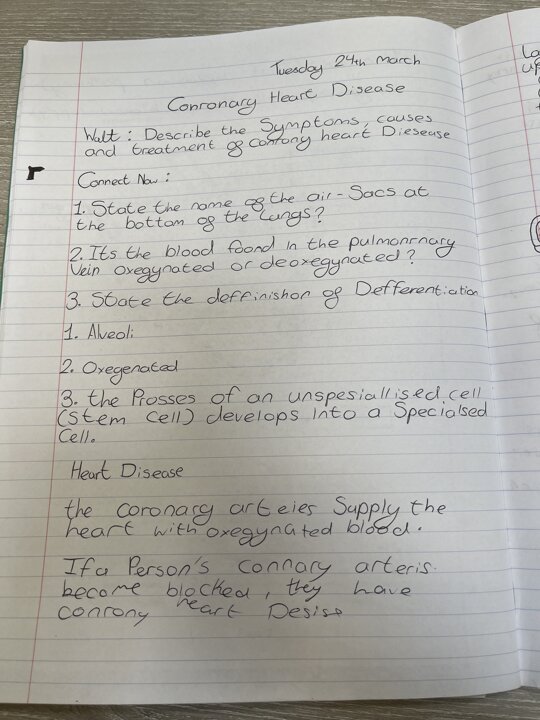 Tuesday 24th March
Conronary Heart Disease
Walt: Describe the Symptoms, causes
and treatment og conrony heart Diesease
Connect Now:
1. State the name og the air-Sacs at
the bottom og the Lungs?
2. Its the blood foond in the pulmonrnary
Vein oxegynated or deoxegynated?
3. State the deffinishon og Defferentiation
1. Alveoli
2. Oxegenated
3. the Prosses of an unspesiallised cell
(stem cell) develops into a Specialsed
Cell.
Heart Disease
the coronary arteies Supply the
heart with oxegynated blood.
If a Person's connary arteris
become blocked, they have
conrony heart Desise